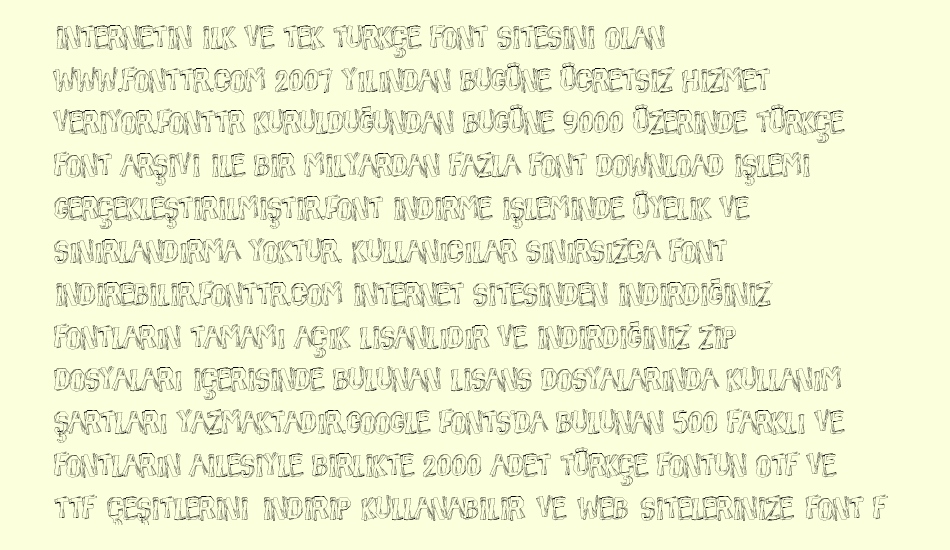 INTERNETIN ILK VE TEK TURKÇE FONT SITESINI OLAN
WWW.FONTTR.COM 2007 YILINDAN BUGÜNE ÜCRETSIZ HIZMET
VERIYOR.FONTTR KURULDUĞUNDAN BUGÜNE 9000 ÜZERINDE TÜRKÇE
FONT ARŞIVI ILE BIR MILYARDAN FAZLA FONT DOWNLOAD IŞLEMI
GERÇEKLEŞTIRILMIŞTIR.FONT INDIRME IŞLEMINDE ÜYELIK VE
SINIRLANDIRMA YOKTUR. KULLANICILAR SINIRSIZCA FONT
INDIREBILIR.FONTTR.COM INTERNET SITESINDEN INDIRDIĞINIZ
FONTLARIN TAMAMI AÇIK LISANLIDIR VE INDIRDIĞINIZ ZIP
DOSYALARI IÇERISINDE BULUNAN LISANS DOSYALARINDA KULLANIM
ŞARTLARI YAZMAKTADIR.GOOGLE FONTS'DA BULUNAN 500 FARKLI VE
FONTLARIN AILESIYLE BIRLIKTE 2000 ADET TÜRKÇE FONTUN OTF VE
TTF ÇEŞITLERINI INDIRIP KULLANABILIR VE WEB SITELERINIZE FONT F